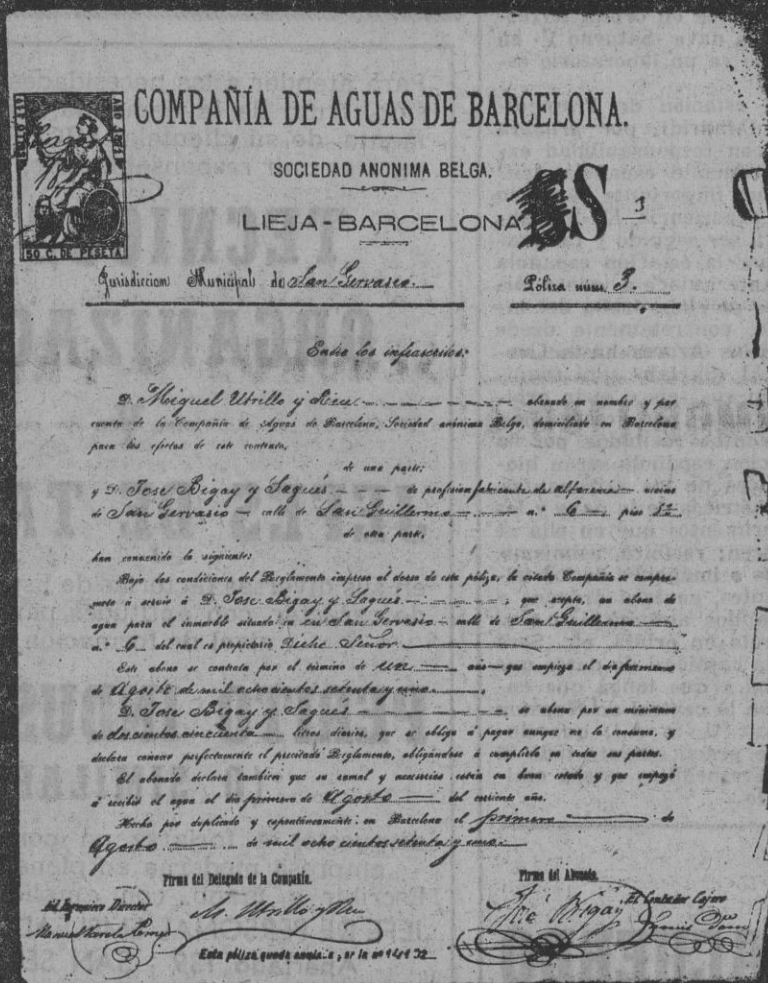 COMPAÑÍA DE AGUAS DE BARCELONA.
SOCIEDAD ANONIMA BELGA.
LIEJA-BARCELONA
S
50 C. DE PESETA
Jurisdiccion Municipal de San Gervasio.
Póliza núm. 3.
Entre los infrascritos:
D. Miguel Utrillo y Rieu obrando en nombre y por
cuenta de la Compañia de Aguas de Barcelona, Sociedad anónima Belga, domiciliada en Barcelona
para los efectos de este contrato,
de una parte;
y D. Jose Bigay y Sagués de profesion fabricante de alfareria vecino
de San Gervasio calle de San Guillermo n.° 6 piso
de otra parte,
han convenido lo siguiente:
Bajo las condiciones del Reglamento impreso al dorso de esta póliza, la citada Compañia se compro-
mete á servir á D. Jose Bigay y Sagués, que acepta, un abono de
agua para el inmueble situado en San Gervasio calle de San Guillermo
n.° 6 del cual es propietario Dicho Señor
Este abono se contrata por el término de un año que empieza el dia primero
de Agosto de mil ochocientos setenta y uno.
D. Jose Bigay y Sagués se abona por un minimum
de doscientos cincuenta litros diarios, que se obliga á pagar aunque no la consuma, y
declara conocer perfectamente el precitado Reglamento, obligándose á cumplirlo en todas sus partes.
El abonado declara tambien que su ramal y accesorios están en buen estado y que empezó
á recibir el agua el dia primero de Agosto del corriente año.
Hecho por duplicado y espontáneamente en Barcelona el primero de
Agosto de mil ocho cientos setenta y uno.
Firma del Delegado de la Compañía.
Firma del Abonado.
El Ingeniero Director
M. Utrillo y Rieu
José Bigay
El Contador Cajero
Esta póliza queda por la nº 141132